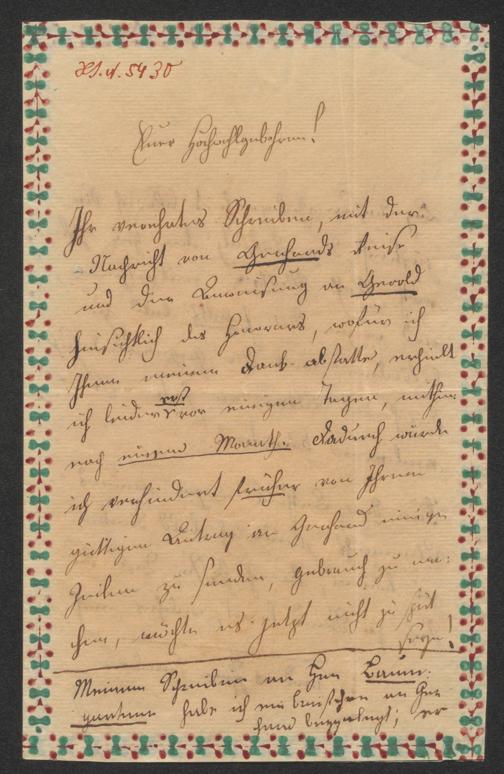 Euer Hochwohlgeboren!
Ihr verehrtes Schreiben, mit der
Nachricht von Gerhards Reise
und der Anweisung an Gerold
hinsichtlich des Honorars, wofür ich
Ihnen meinen Dank abstatte, erhielt
ich leider erst vor einigen Tagen, mithin
nach einem Monath. Dadurch wurde
ich verhindert früher von Ihrem
gütigen Antrag an Gerhard einige
Zeilen zu senden, Gebrauch zu ma-
chen, möchte es jetzt nicht zu spät
seyn!
Meinem Schreiben an Herr Baum-
gartner habe ich ein an Ger-
hard beygelegt; er